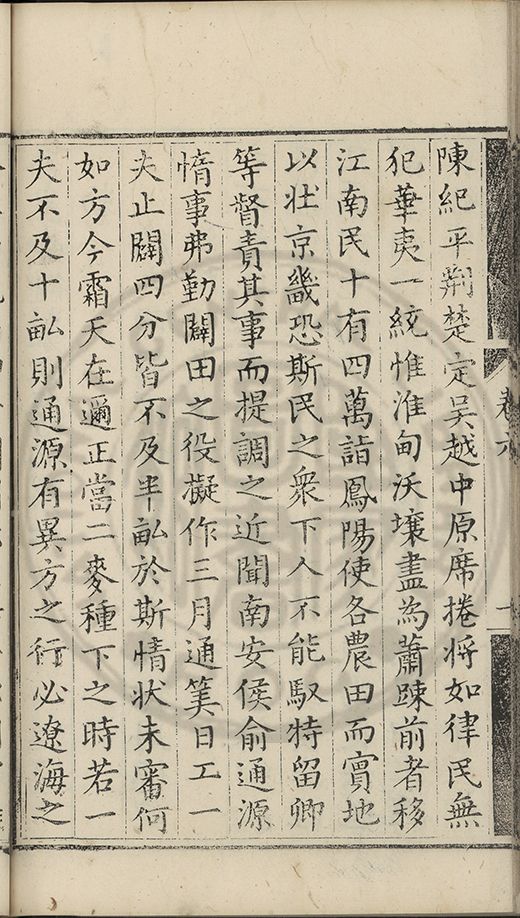 卷六
一
陳紀平荆楚定吳越中原席捲將如律民無
犯華夷一統惟淮甸沃壤盡為蕭踈前者移
江南民十有四萬詣鳳陽使各農田而實地
以壯京畿恐斯民之衆下人不能馭特留卿
等督責其事而提調之近聞南安侯俞通源
惰事弗勤闢田之役擬作三月通筭日工一
夫止闢四分皆不及半畆於斯情状未審何
如方今霜天在邇正當二麥種下之時若一
夫不及十畆則通源有異方之行必遼海之